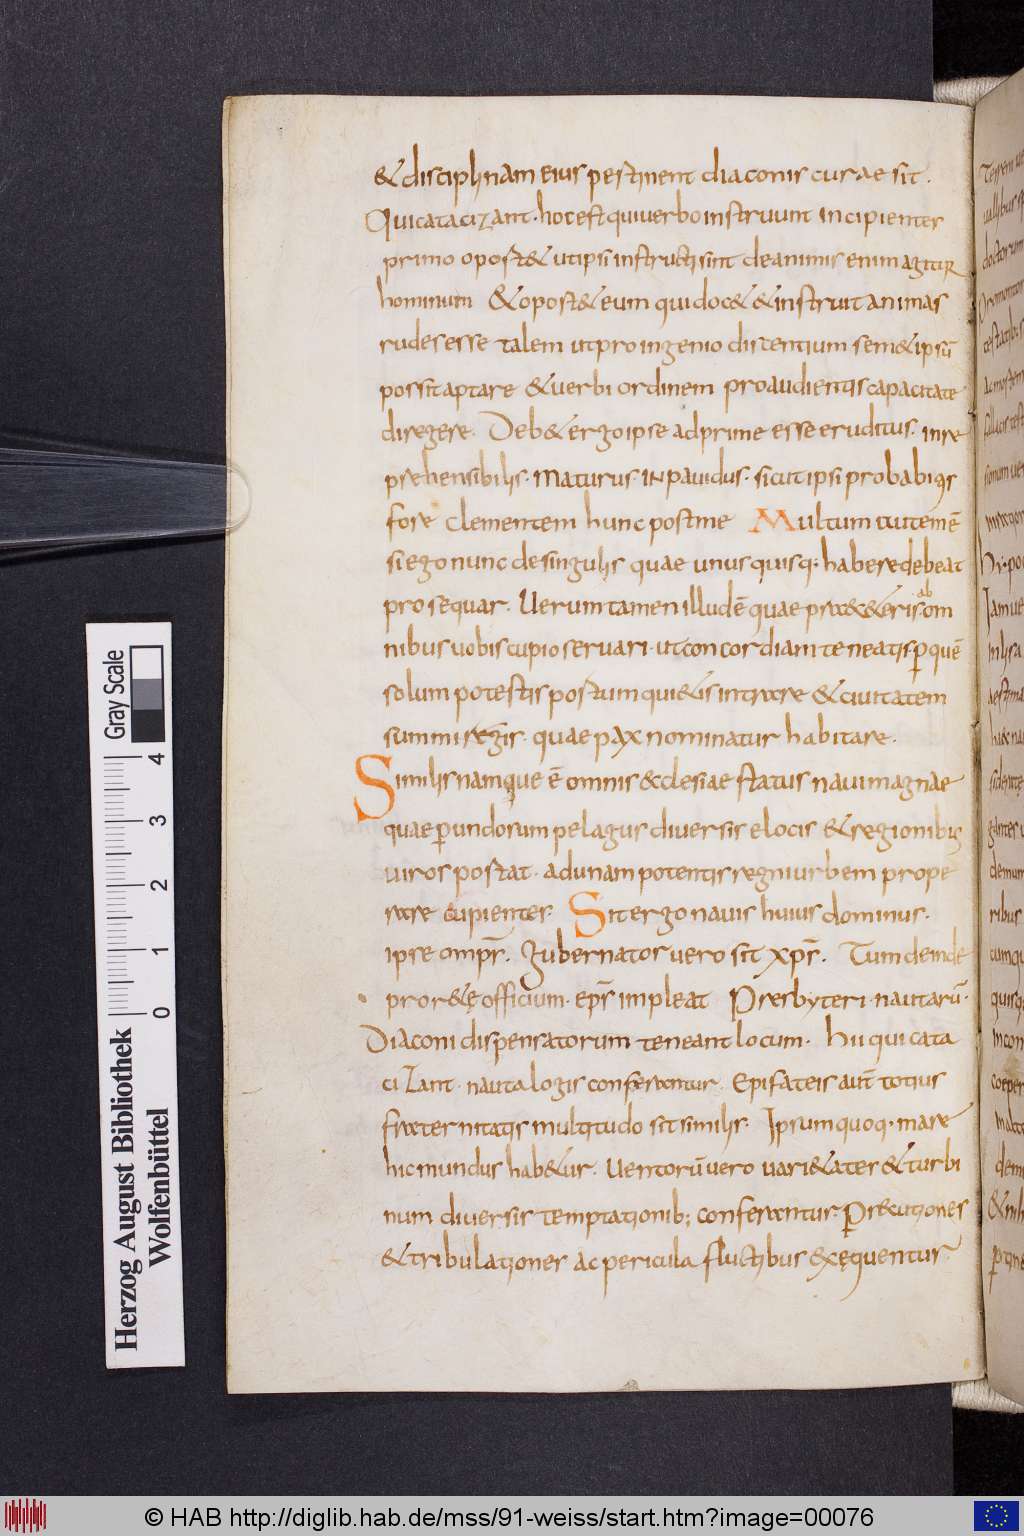 & disciplinam eius pertinent diaconis curae sit.
Qui catacizant. hoc est qui verbo instruunt incipientes
primo oport& ut ipsi instructi sint de animis enim agitur
hominum & oport& eum qui doc& & instruit animas
rudes esse talem ut pro ingenio discentium sem& ipsū
possit aptare & verbi ordinem pro audientis capacitate
diregere. Deb& ergo ipse adprime esse eruditus. inre
prehensibilis. maturus. inpauidus. sicut ipsi probabitis
fore clementem hunc postme Multum autem ē
si ego nunc de singulis quae unusquisq· habere debeat
prosequar. Uerum tamen illud ē quae prae c&eris ab om
nibus uobis cupio seruari. ut concordiam teneatis p quē
solum potestis portum qui&is intrare & ciuitatem
summi regis. quae pax nominatur habitare.
Similis namque ē omnis ecclesiae status naui magnae
quae p undosum pelagus diuersis e locis & regionibus
uiros portat. ad unam potentis regni urbem prope
rare cupientes. Sit ergo nauis huius dominus.
ipse omps. gubernator uero sit xps. Tum deinde
pror&ę officium. eps impleat Presbyteri. nautarū.
Diaconi dispensatorum teneant locum. hii qui cata
cizant. nautalogis conferantur. Epifateis aut totius
fraternitatis multitudo sit similis. Ipsum quoq· mare
hic mundus hab&ur. Uentorū uero uari&ates & turbi
num diuersis temptationib; conferantur. Persecutiones
& tribulationes ac pericula fluctibus exęquentur.
Herzog August Bibliothek
Wolfenbüttel
0 1 2 3 4
Gray Scale
© HAB http://diglib.hab.de/mss/91-weiss/start.htm?image=00076